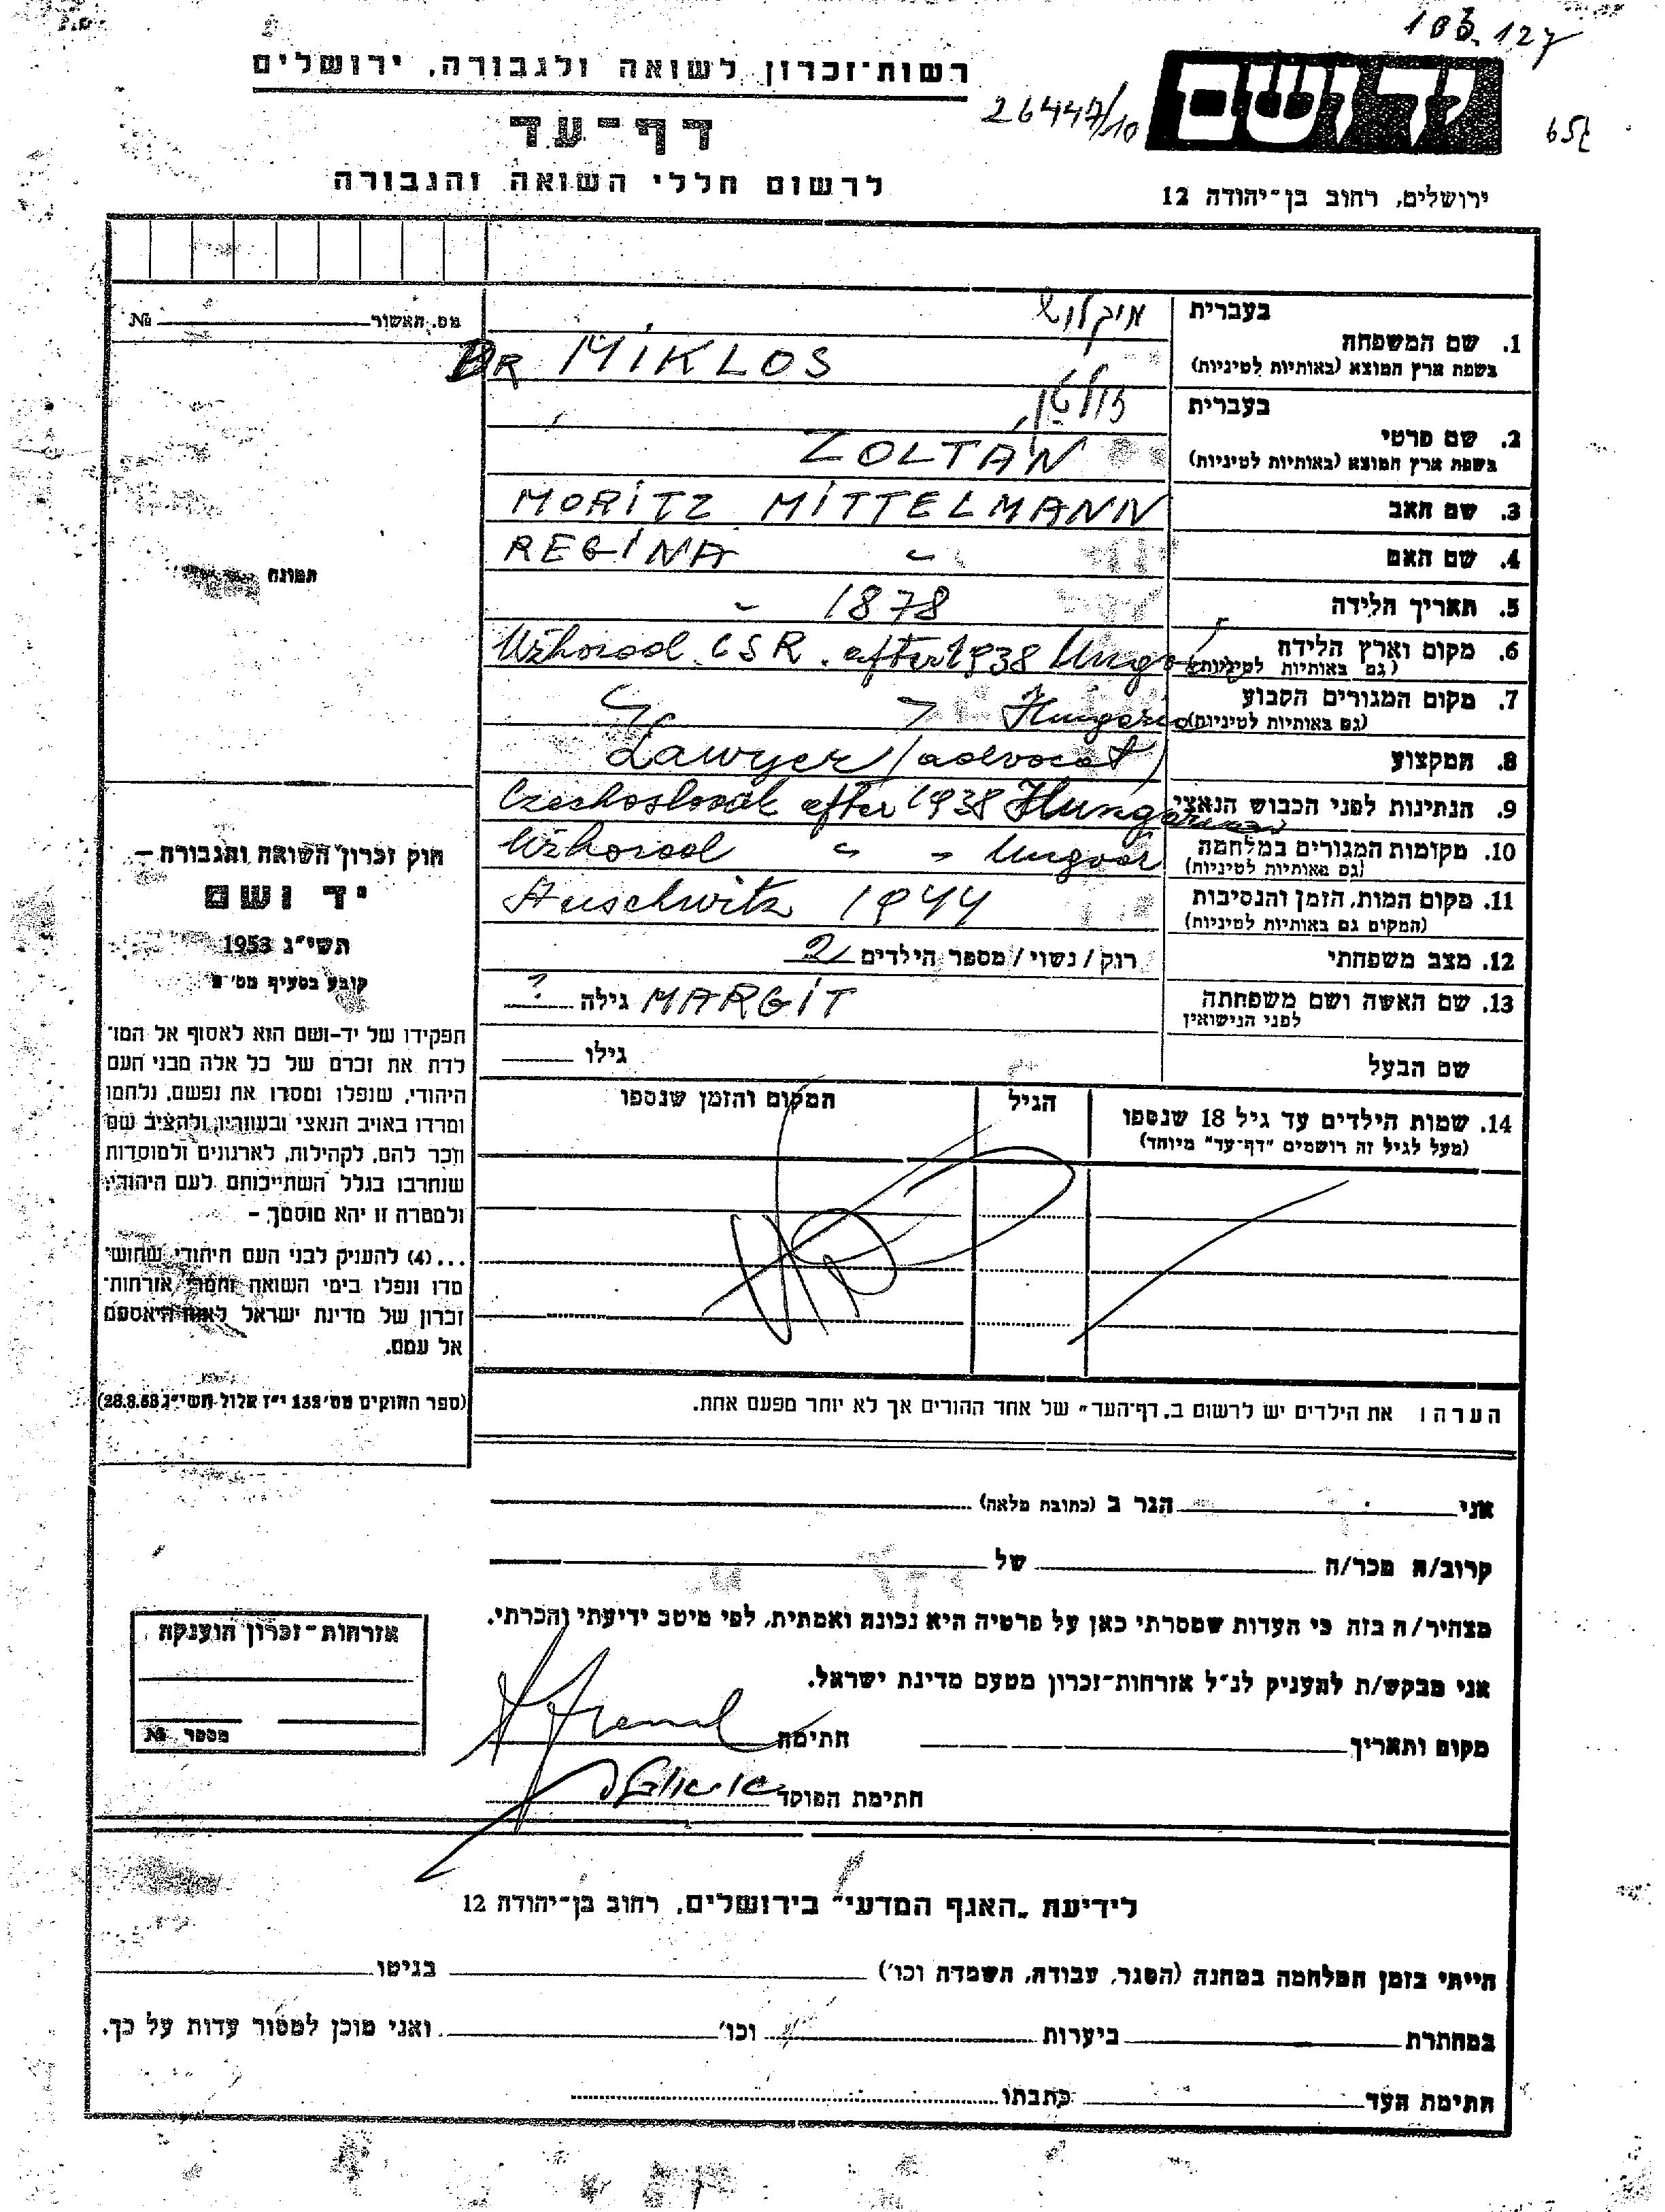 רשות־זכרון לשואה ולגבורה, ירושלים
דף־עד
לרשום חללי השואה והגבורה
26447/10
ירושלים, רחוב בן־יהודה 12
בעברית מיקלוש
1. שם המשפחה
בשפת ארץ המוצא (באותיות לטיניות) DR MIKLOS
בעברית זולטן
2. שם פרטי
בשפת ארץ המוצא (באותיות לטיניות) ZOLTÁN
3. שם האב MORITZ MITTELMANN
4. שם האם REGINA "
5. תאריך הלידה - 1878
6. מקום וארץ הלידה Užhorod CSR. after 1938 Ungvár
(גם באותיות לטיניות)
7. מקום המגורים הקבוע Hungaria
(גם באותיות לטיניות)
8. המקצוע Lawyer (advocat)
9. הנתינות לפני הכבוש הנאצי Czechoslovak after 1938 Hungarian
10. מקומות המגורים במלחמה Užhorod " " Ungvár
(גם באותיות לטיניות)
11. מקום המות, הזמן והנסיבות Auschwitz 1944
(המקום גם באותיות לטיניות)
12. מצב משפחתי רוק / נשוי / מספר הילדים 2
13. שם האשה ושם משפחתה MARGIT גילה ?
לפני הנישואין
שם הבעל גילו
14. שמות הילדים עד גיל 18 שנספו הגיל המקום והזמן שנספו
(מעל לגיל זה רושמים "דף־עד" מיוחד)
הערה: את הילדים יש לרשום ב„דף־העד" של אחד ההורים אך לא יותר מפעם אחת.
מס. האשור №
תמונה
חוק זכרון השואה והגבורה —
יד ושם
תשי"ג 1953
קובע בסעיף מס'
תפקידו של יד-ושם הוא לאסוף אל המו־
לדת את זכרם של כל אלה מבני העם
היהודי, שנפלו ומסרו את נפשם, נלחמו
ומרדו באויב הנאצי ובעוזריו, ולהציב שם
וזכר להם, לקהילות, לארגונים ולמוסדות
שנחרבו בגלל השתייכותם לעם היהודי,
ולמטרה זו יהא מוסמך –
...(4) להעניק לבני העם היהודי שהוש־
מדו ונפלו בימי השואה והמרי אזרחות־
זכרון של מדינת ישראל לאות היאספם
אל עמם.
(ספר החוקים מס' 132 י"ז אלול תשי"ג 28.8.53)
אני הגר ב (כתובת מלאה)
קרוב/ה מכר/ה של
מצהיר/ה בזה כי העדות שמסרתי כאן על פרטיה היא נכונה ואמתית, לפי מיטב ידיעתי והכרתי.
אני מבקש/ת להעניק לנ"ל אזרחות־זכרון מטעם מדינת ישראל.
מקום ותאריך חתימה
חתימת הפוקד
אזרחות־זכרון הוענקה
מספר №
לידיעת „האגף המדעי" בירושלים, רחוב בן־יהודה 12
הייתי בזמן המלחמה במחנה (הסגר, עבודה, השמדה וכו') בגיטו
במחתרת ביערות וכו' ואני מוכן למסור עדות על כך.
חתימת העד כתבתו